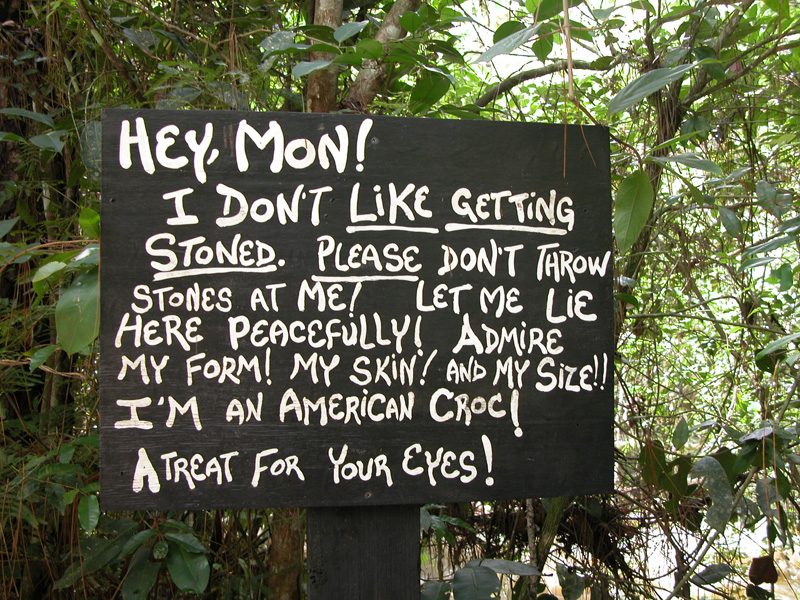 HEY, MON!
I DON'T LiKE GETTiNG
STONED. PLEASE DON'T THROW
STONES AT ME! LET ME LiE
HERE PEACEFULLY! ADMIRE
MY FORM! MY SKIN! AND MY SiZE!!
I'M AN AMERICAN CROC!
A TREAT FOR YOUR EYES!